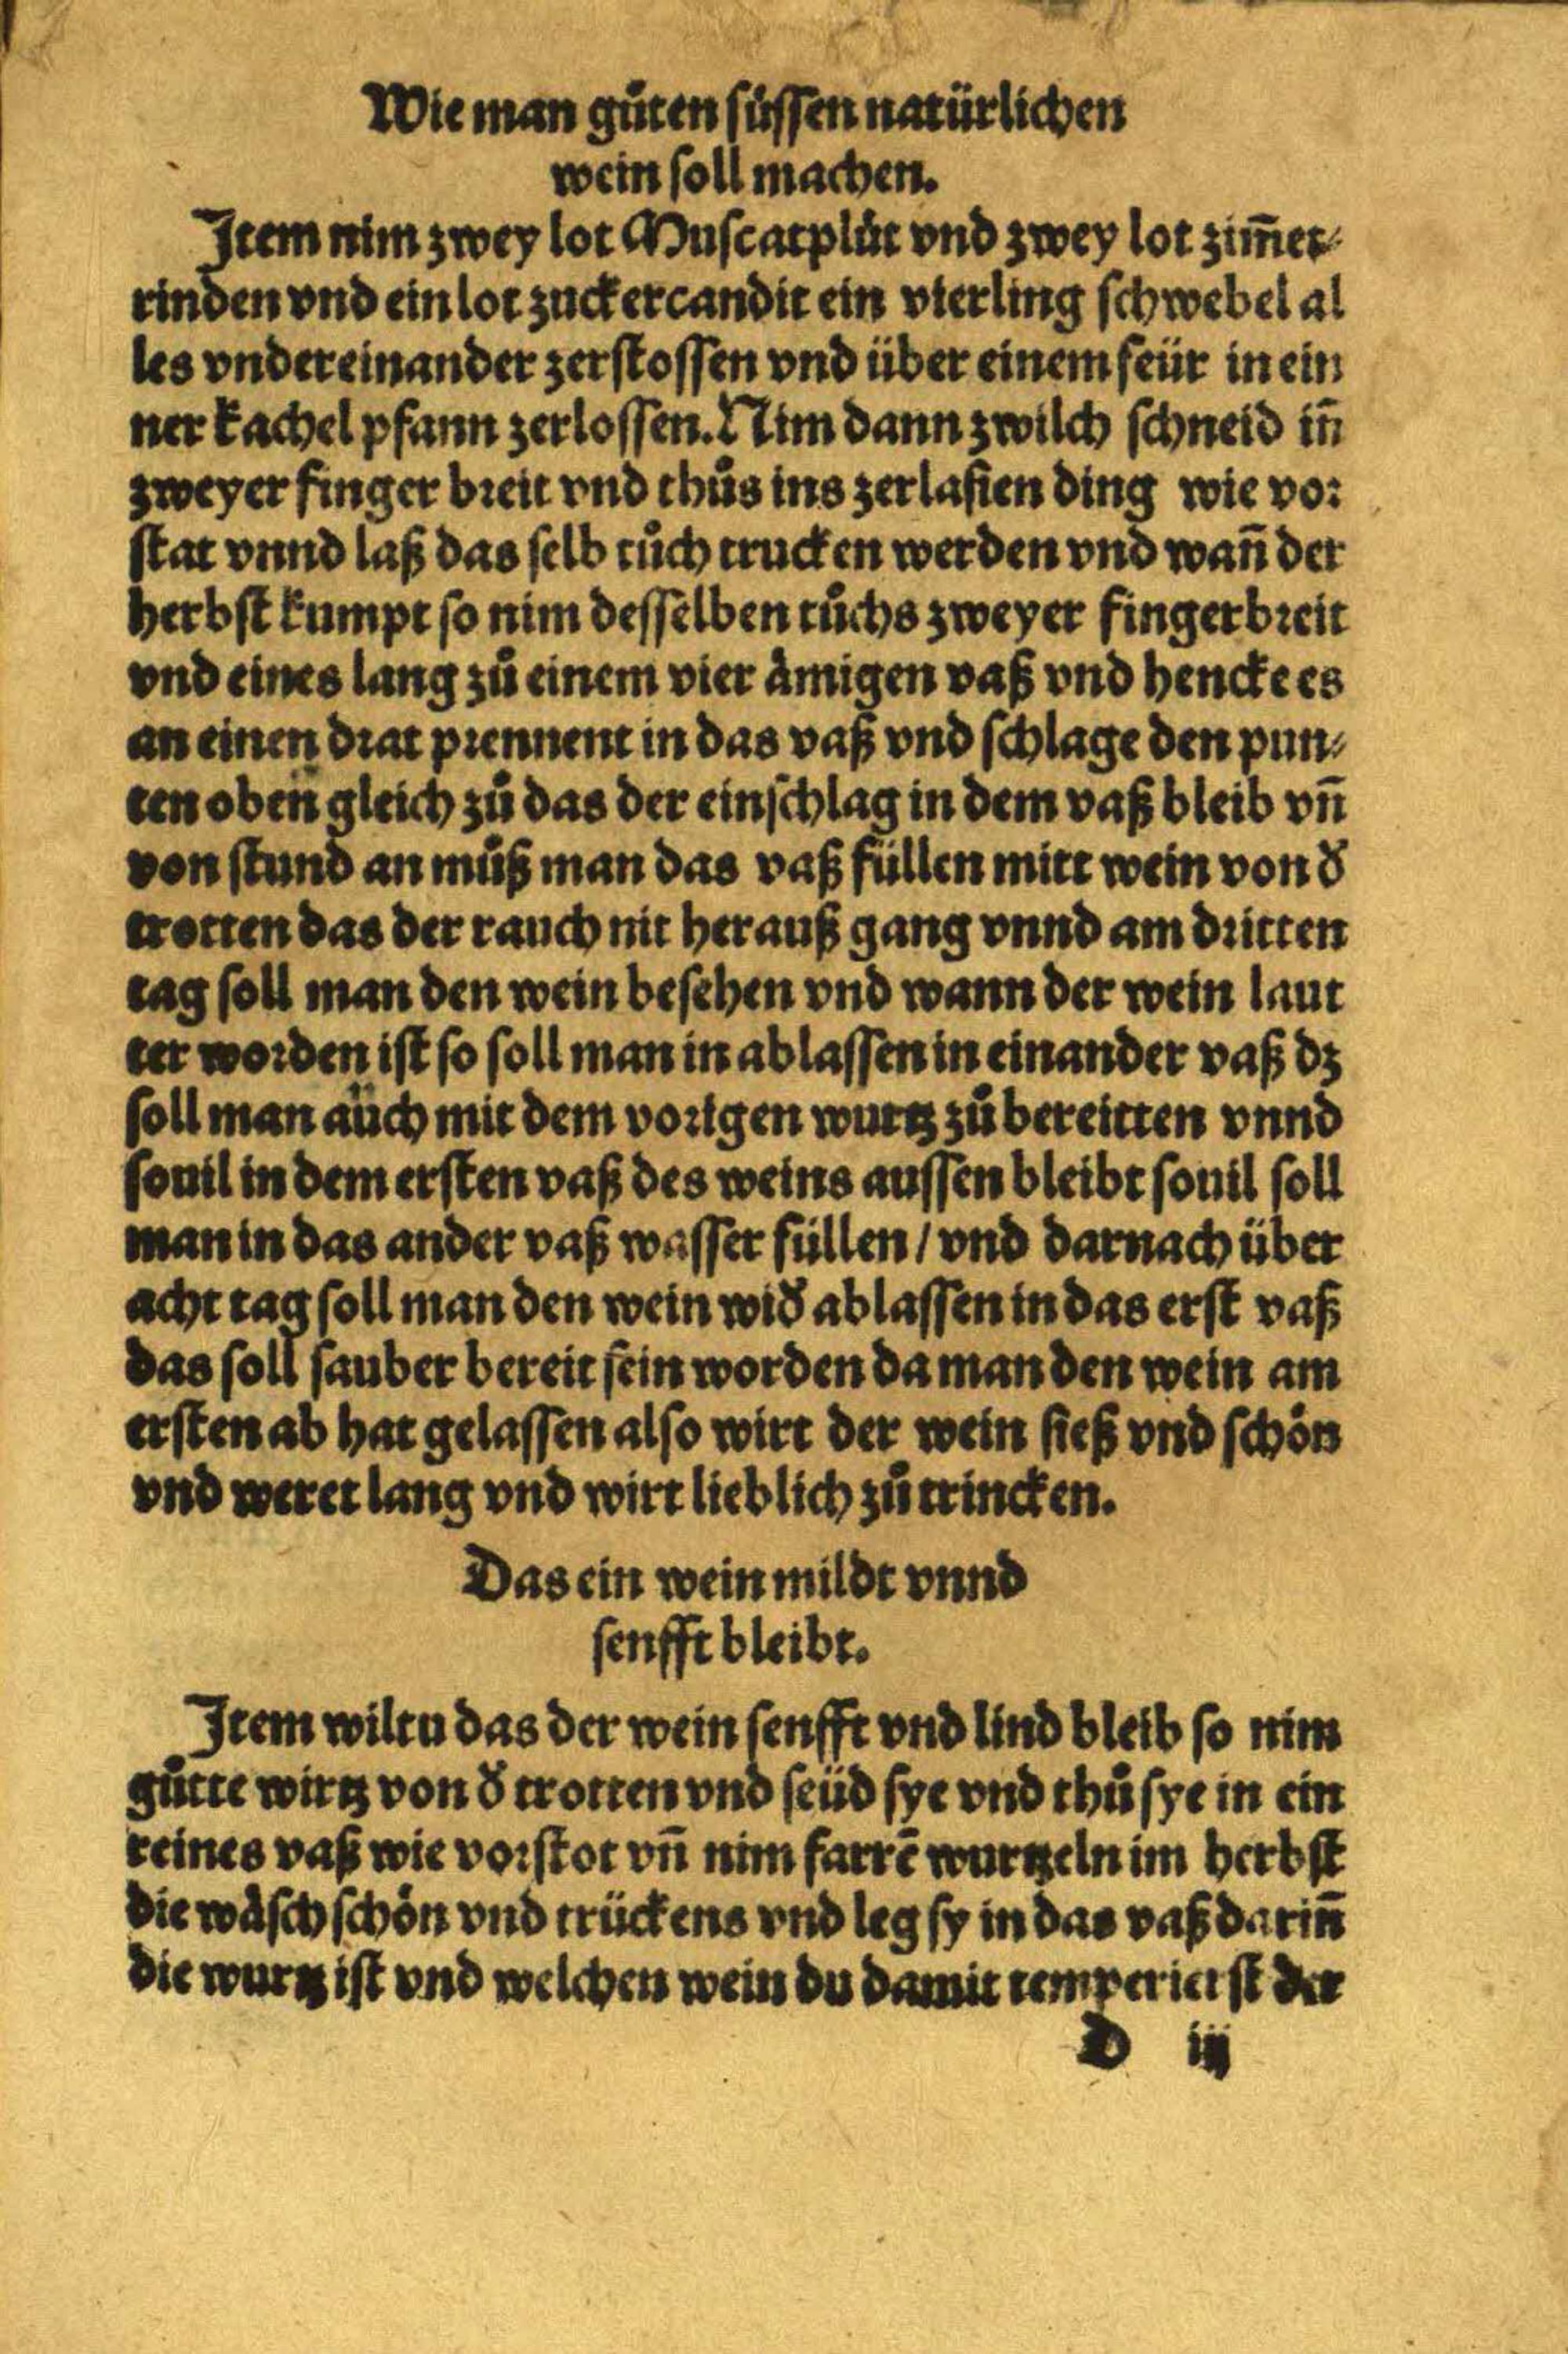 Wie man gůten süssen natürlichen
wein soll machen.
Item nim zwey lot Muscatplůt vnd zwey lot zim̄et⸗
rinden vnd ein lot zuckercandit ein vierling schwebel al
les vndereinander zerstossen vnd über einem feür in ein
ner kachel pfann zerlossen. Nim dann zwilch schneid in̄
zweyer finger breit vnd thůs ins zerlaßen ding wie vor
stat vnnd laß das selb tůch trucken werden vnd wan̄ der
herbst kumpt so nim desselben tůchs zweyer fingerbreit
vnd eines lang zů einem vier åmigen vaß vnd hencke es
an einen drat prennent in das vaß vnd schlage den pun⸗
ten oben gleich zů das der einschlag in dem vaß bleib vn̄
von stund an můß man das vaß füllen mitt wein von d̕
trotten das der rauch nit herauß gang vnnd am dritten
tag soll man den wein besehen vnd wann der wein laut
ter worden ist so soll man in ablassen in einander vaß dz
soll man aůch mit dem vorigen wurtz zů bereitten vnnd
souil in dem ersten vaß des weins aussen bleibt souil soll
man in das ander vaß wasser füllen / vnd darnach über
acht tag soll man den wein wid̕ ablassen in das erst vaß
das soll sauber bereit sein worden da man den wein am
ersten ab hat gelassen also wirt der wein sieß vnd schön
vnd weret lang vnd wirt lieblich zů trincken.
Das ein wein mildt vnnd
senfft bleibt.
Item wiltu das der wein senfft vnd lind bleib so nim
gůtte wirtz von d̕ trotten vnd seüd sye vnd thů sye in ein
reines vaß wie vorstot vn̄ nim farrē wurtzeln im herbst
die wåsch schön vnd trückens vnd leg sy in das vaß darin̄
die wurtz ist vnd welchen wein du damit temperierst der
D iij